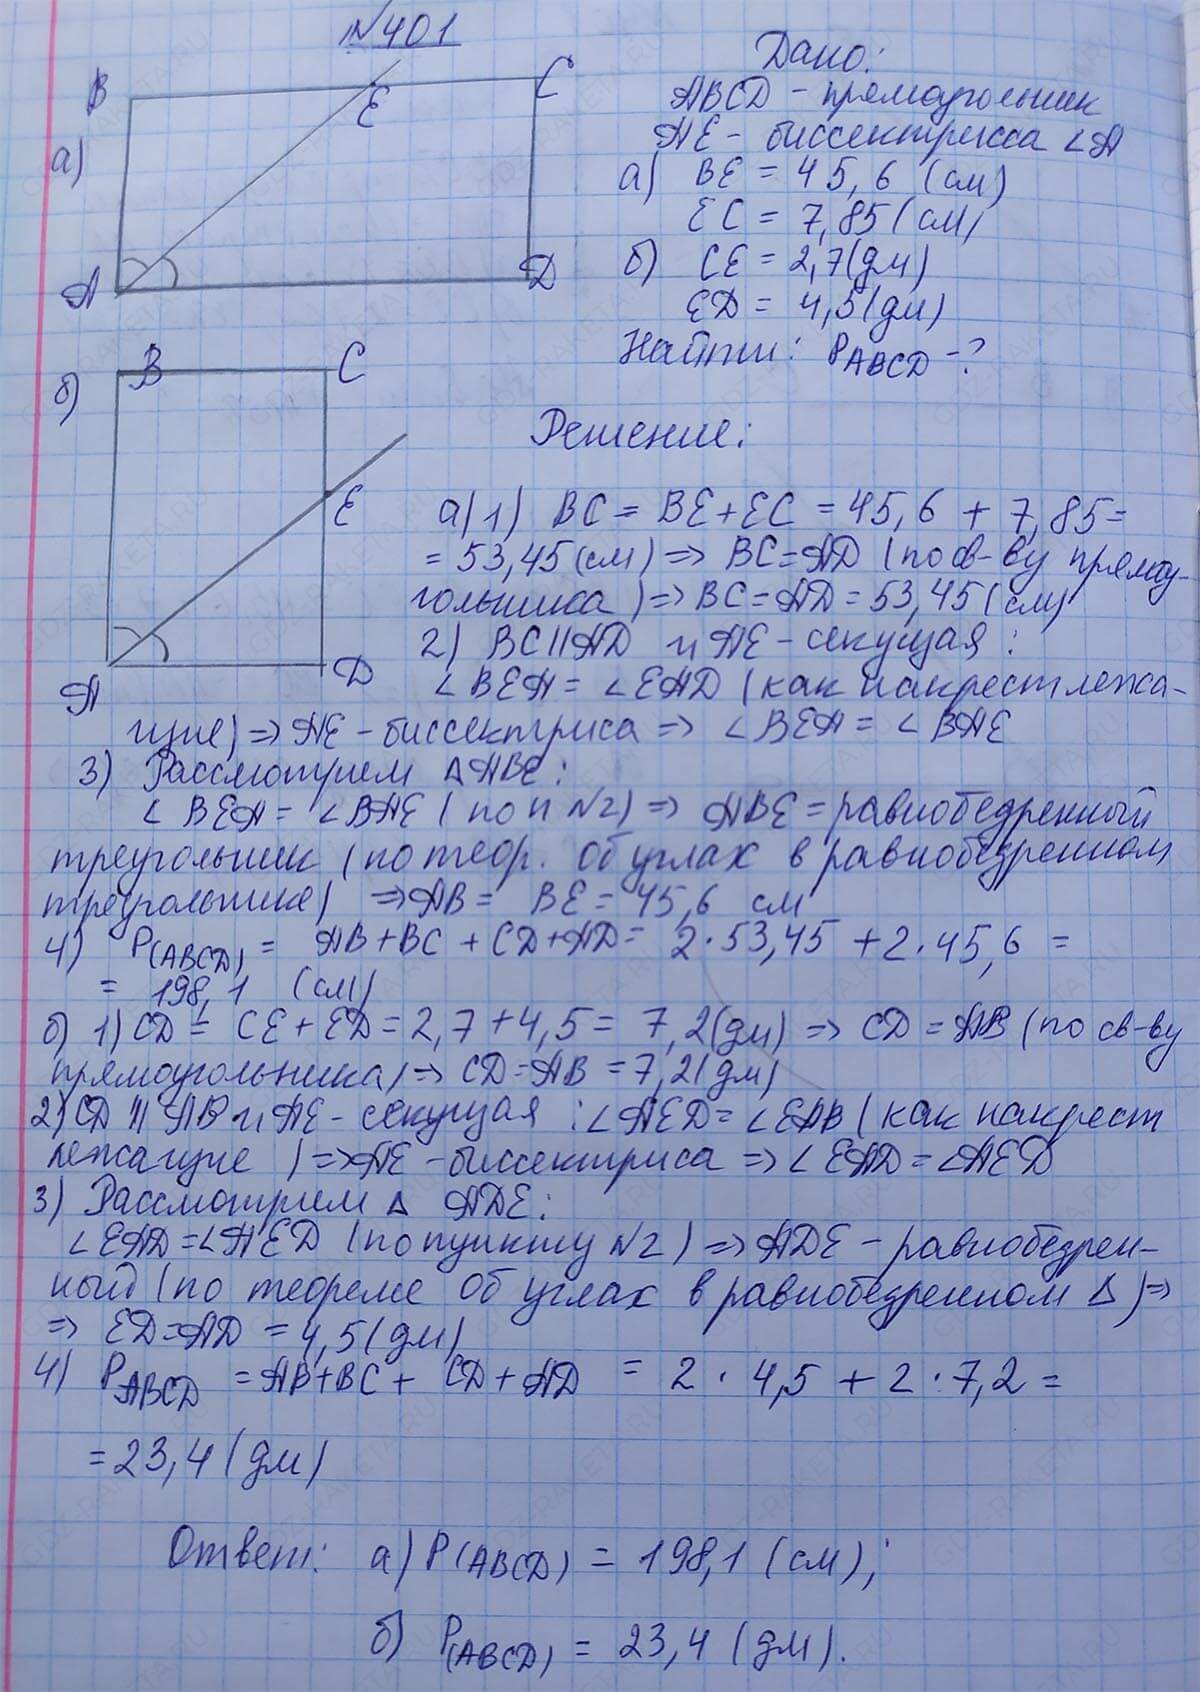 №401
B
E
C
а)
A
D
Дано:
ABCD - прямоугольник
AE - биссектрисса ∠A
а) BE = 45,6 (см)
EC = 7,85 (см)
б) CE = 2,7 (дм)
ED = 4,5 (дм)
Найти: P ABCD - ?
б)
B
C
E
A
D
Решение:
а) 1) BC = BE + EC = 45,6 + 7,85 =
= 53,45 (см) ⇒ BC = AD (по св-ву прямоу-
гольника) ⇒ BC = AD = 53,45 (см)
2) BC || AD и AE - секущая:
∠BEA = ∠EAD (как накрест лежа-
щие) ⇒ AE - биссектриса ⇒ ∠BEA = ∠BAE
3) Рассмотрим △ABE:
∠BEA = ∠BAE (по п №2) ⇒ ABE = равнобедренный
треугольник (по теор. об углах в равнобедренном
треугольнике) ⇒ AB = BE = 45,6 см
4) P(ABCD) = AB + BC + CD + AD = 2·53,45 + 2·45,6 =
= 198,1 (см)
б) 1) CD = CE + ED = 2,7 + 4,5 = 7,2 (дм) ⇒ CD = AB (по св-ву
прямоугольника) ⇒ CD = AB = 7,2 (дм)
2) CD || AB и AE - секущая: ∠AED = ∠EAB (как накрест
лежащие) ⇒ AE - биссектриса ⇒ ∠EAD = ∠AED
3) Рассмотрим △ ADE:
∠EAD = ∠AED (по пункту №2) ⇒ ADE - равнобедрен-
ный (по теореме об углах в равнобедренном △) ⇒
⇒ ED = AD = 4,5 (дм)
4) P ABCD = AB + BC + CD + AD = 2·4,5 + 2·7,2 =
= 23,4 (дм)
Ответ: а) P(ABCD) = 198,1 (см);
б) P(ABCD) = 23,4 (дм).